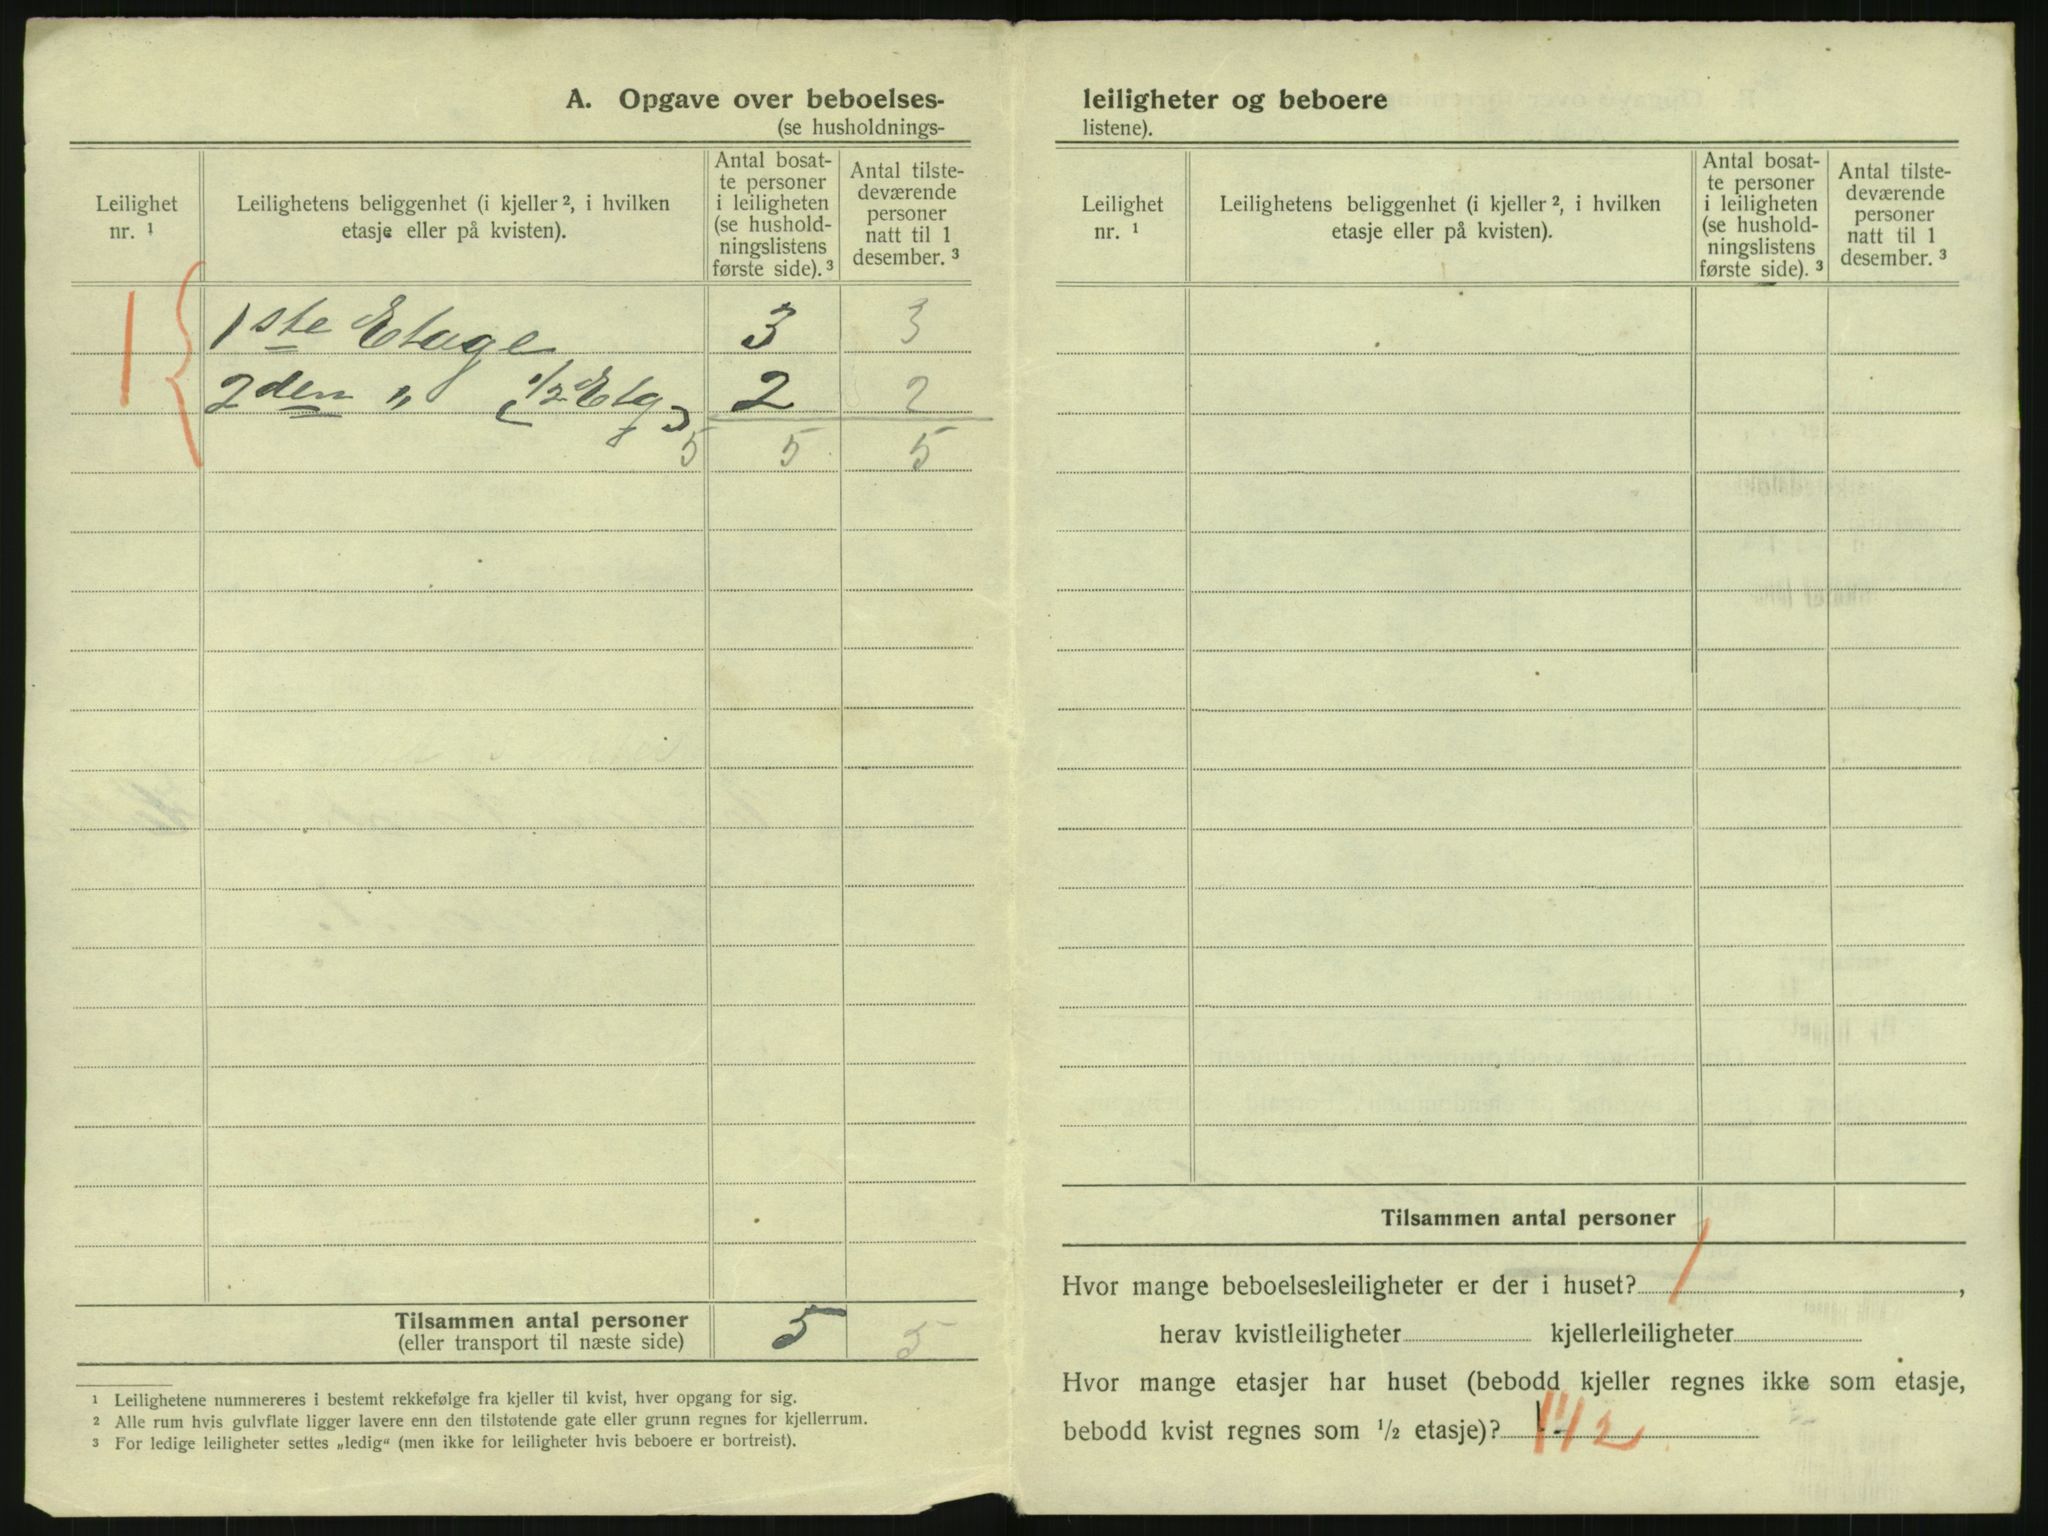 A. Opgave over beboelses-
(se husholdnings-
Leilighet nr. ¹
Leilighetens beliggenhet (i kjeller ², i hvilken etasje eller på kvisten).
Antal bosat-
te personer
i leiligheten
(se hushold-
ningslistens
første side). ³
Antal tilste-
deværende
personer
natt til 1
desember. ³
1
1ste Etage 3 3
2den " (1/2 Etg) 2 2
5 5 5
Tilsammen antal personer 5 5
(eller transport til næste side)
¹ Leilighetene nummereres i bestemt rekkefølge fra kjeller til kvist, hver opgang for sig.
² Alle rum hvis gulvflate ligger lavere enn den tilstøtende gate eller grunn regnes for kjellerrum.
³ For ledige leiligheter settes „ledig“ (men ikke for leiligheter hvis beboere er bortreist).
leiligheter og beboere
listene).
Leilighet nr. ¹
Leilighetens beliggenhet (i kjeller ², i hvilken etasje eller på kvisten).
Antal bosat-
te personer
i leiligheten
(se hushold-
ningslistens
første side). ³
Antal tilste-
deværende
personer
natt til 1
desember. ³
Tilsammen antal personer
Hvor mange beboelsesleiligheter er der i huset? 1,
herav kvistleiligheter kjellerleiligheter
Hvor mange etasjer har huset (bebodd kjeller regnes ikke som etasje,
bebodd kvist regnes som ½ etasje)? 1 1/2